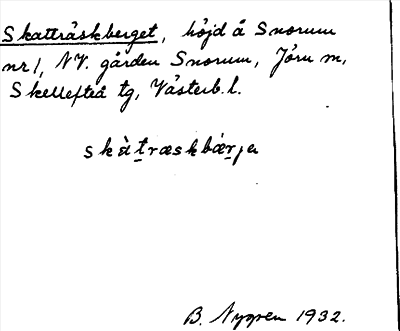 Skatträskberget, höjd å Snorum
nr 1, NV. gården Snorum, Jörn m,
Skellefteå tg, Västerb. l.
skàtræskbærja
B. Nygren 1932.